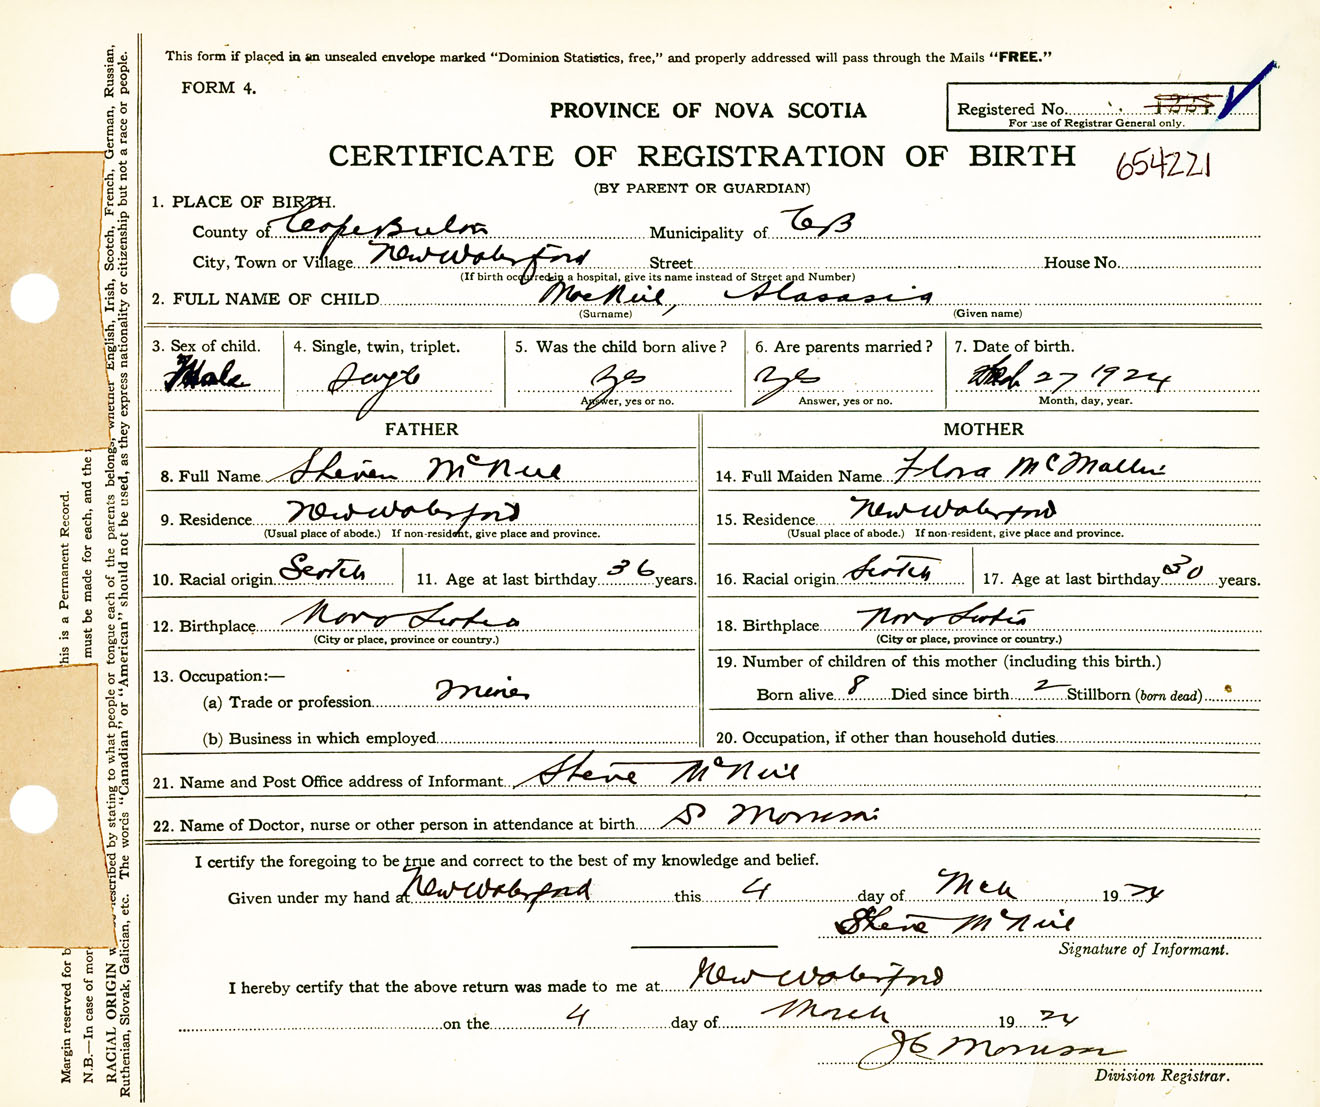 This form if placed in an unsealed envelope marked "Dominion Statistics, free," and properly addressed will pass through the Mails "FREE."
FORM 4.
PROVINCE OF NOVA SCOTIA
Registered No.
For use of Registrar General only.
CERTIFICATE OF REGISTRATION OF BIRTH
654221
(BY PARENT OR GUARDIAN)
1. PLACE OF BIRTH.
County of Cape Breton Municipality of CB
City, Town or Village New Waterford Street House No.
(If birth occurred in a hospital, give its name instead of Street and Number)
2. FULL NAME OF CHILD MacNeil,
(Surname) (Given name)
3. Sex of child. 4. Single, twin, triplet. 5. Was the child born alive? 6. Are parents married? 7. Date of birth.
Male Single yes yes 27 1924
Answer, yes or no. Answer, yes or no. Month, day, year.
FATHER MOTHER
8. Full Name Steven McNeil 14. Full Maiden Name Flora McMullin
9. Residence New Waterford 15. Residence New Waterford
(Usual place of abode.) If non-resident, give place and province. (Usual place of abode.) If non-resident, give place and province.
10. Racial origin Scotch 11. Age at last birthday 36 years. 16. Racial origin Scotch 17. Age at last birthday 30 years.
12. Birthplace Nova Scotia 18. Birthplace Nova Scotia
(City or place, province or country.) (City or place, province or country.)
13. Occupation:— 19. Number of children of this mother (including this birth.)
(a) Trade or profession Miner Born alive 8 Died since birth 2 Stillborn (born dead)
(b) Business in which employed 20. Occupation, if other than household duties
21. Name and Post Office address of Informant Steve McNeil
22. Name of Doctor, nurse or other person in attendance at birth Morrison
I certify the foregoing to be true and correct to the best of my knowledge and belief.
Given under my hand at New Waterford this 4 day of Mch 1924
Steve McNeil
Signature of Informant.
I hereby certify that the above return was made to me at New Waterford
on the 4 day of March 1924
Morrison
Division Registrar.
Margin reserved for b his is a Permanent Record.
N.B.—In case of mor must be made for each, and the
RACIAL ORIGIN described by stating to what people or tongue each of the parents belongs, whether English, Irish, Scotch, French, German, Russian,
Ruthenian, Slovak, Galician, etc. The words "Canadian" or "American" should not be used, as they express nationality or citizenship but not a race or people.